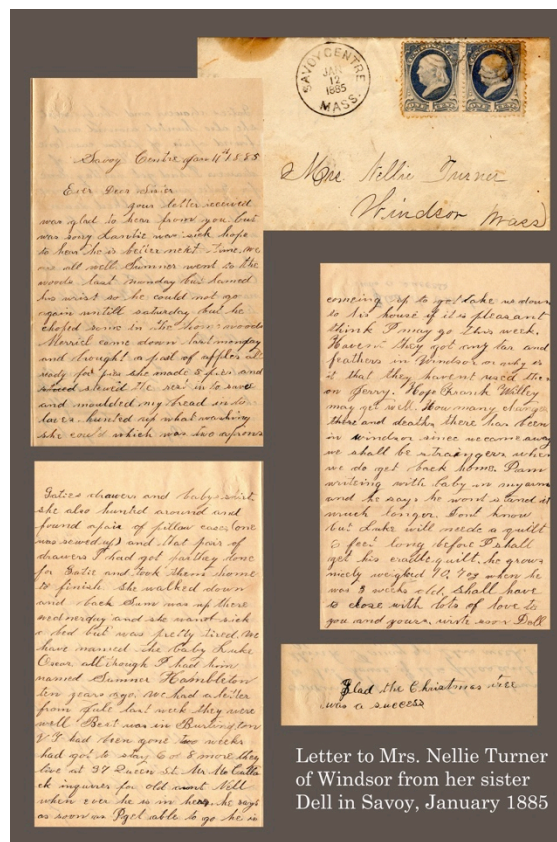 SAVOY CENTRE
JAN
12
1885
MASS.
Mrs Nellie Turner
Windsor
Mass
Savoy Centre Jan 11th 1885
Ever Dear Sister
your letter received
was glad to hear from you but
was sorry was sick hope
to hear he is better next time. we
are all well Sumner went to the
woods last monday but lamed
his wrist so he could not go
again untill saturday but he
choped some in the home woods
Merriel came down last monday
and brought a pail of apples all
ready for pies she made 5 pies and
stew'd the rest in to sauce
and moulded my bread in to
loaves hunted up what washing
she could which was two aprons
Saties drawers and babys skirt
she also hunted around and
found a pair of pillow cases (one
was sewed up) and that pair of
drawers I had got partley done
for Satie and took them home
to finish. She walked down
and back Sam was up there
wednesday and she was not sick
a bed but was pretty tired. We
have named the baby Luke
Oscar, all though I had him
named Sumner Hambleton
ten years ago. We had a letter
from last week they were
well Bert was in Burlington
V T had been gone two weeks
had got to stay 6 or 8 more they
live at 37 Queen St. Mr
inquires for old aunt Nell
when ever he is in here, he says
as soon as I get able to go he is
comeing up to get take us down
to his house if it is pleasant
think I may go this week.
Haven't they got any tar and
feathers in Windsor or why is
it that they havent used them
on Perry. Hope Frank Withey
may get well. How many changes
there and deaths there has been
in windsor since we came away
we shall be strangers when
we do get back home. I am
writing with baby in my arms
and he says he wont stand it
much longer. dont know
but Luke will neede a quilt
6 feet long before I shall
get his cradle quilt, he grows
nicely weighed 10
was 3 weeks old. Shall have
to close with lots of love to
you and yours. write soon Dell
Glad the Christmas tree
was a success
Letter to Mrs. Nellie Turner
of Windsor from her sister
Dell in Savoy, January 1885